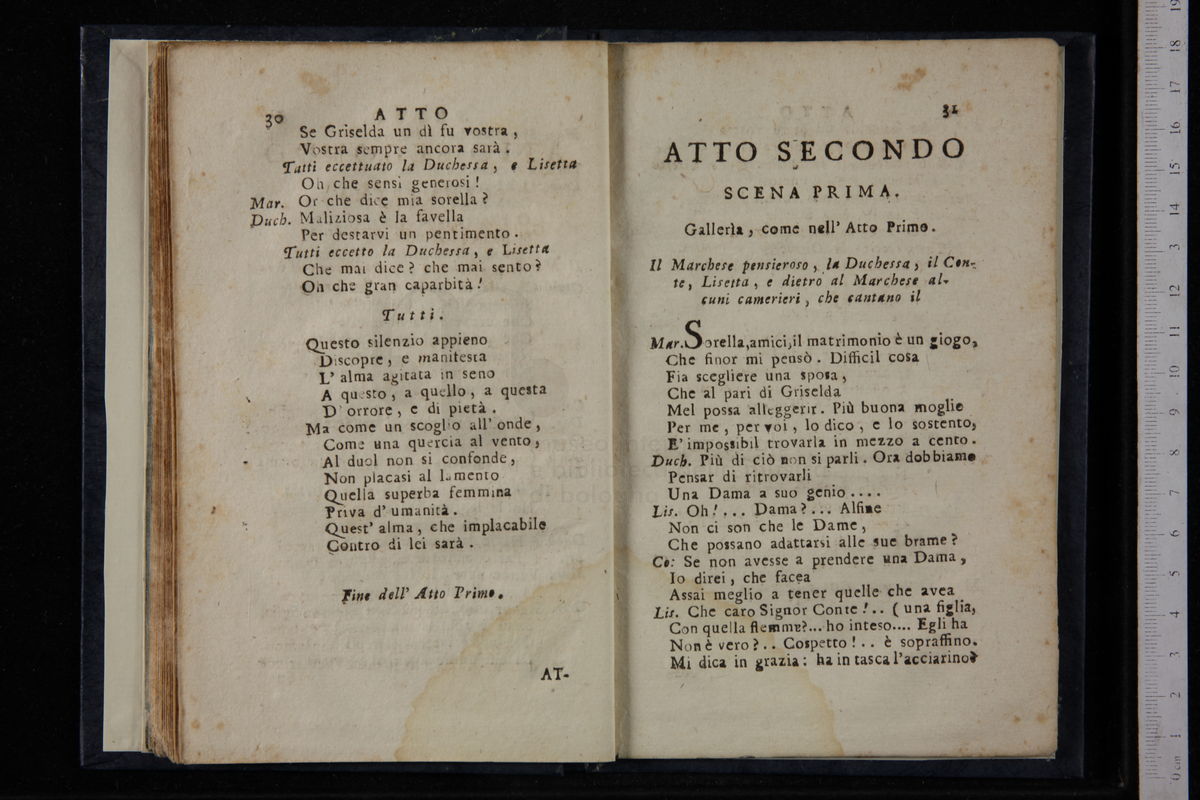 30 ATTO
Se Griselda un dì fu vostra,
Vostra sempre ancora sarà.
Tutti eccettuato la Duchessa, e Lisetta
Oh che sensi generosi!
Mar. Or che dice mia sorella?
Duch. Maliziosa è la favella
Per destarvi un pentimento.
Tutti eccetto la Duchessa, e Lisetta
Che mai dice? che mai sento?
Oh che gran caparbità!
Tutti.
Questo silenzio appieno
Discopre, e manifesta
L'alma agitata in seno
A questo, a quello, a questa
D'orrore, e di pietà.
Ma come un scoglio all'onde,
Come una quercia al vento,
Al duol non si confonde,
Non placasi al lamento
Quella superba femmina
Priva d'umanità.
Quest'alma, che implacabile
Contro di lei sarà.
Fine dell'Atto Primo.
AT-
31
ATTO SECONDO
SCENA PRIMA.
Gallerìa, come nell'Atto Primo.
Il Marchese pensieroso, la Duchessa, il Con-
te, Lisetta, e dietro al Marchese al-
cuni camerieri, che cantano il
Mar. Sorella, amici, il matrimonio è un giogo,
Che finor mi pensò. Difficil cosa
Fia scegliere una sposa,
Che al pari di Griselda
Mel possa alleggerir. Più buona moglie
Per me, per voi, lo dico, e lo sostento,
E' impossibil trovarla in mezzo a cento.
Duch. Più di ciò non si parli. Ora dobbiamo
Pensar di ritrovarli
Una Dama a suo genio....
Lis. Oh!... Dama?... Alfine
Non ci son che le Dame,
Che possano adattarsi alle sue brame?
Co: Se non avesse a prendere una Dama,
Io direi, che facea
Assai meglio a tener quelle che avea
Lis. Che caro Signor Conte!.. (una figlia,
Con quella flemma?... ho inteso.... Egli ha
Non è vero?.. Cospetto!.. è sopraffino.
Mi dica in grazia: ha in tasca l'acciarino?